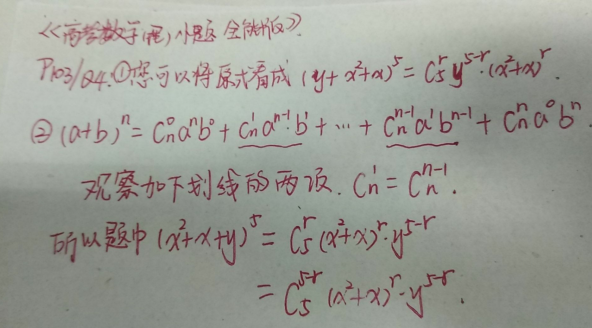 《高考数学(理)小题全能版》.
P103/Q4.①您可以将原式看成 (y+x²+x)⁵ = C₅ʳ y⁵⁻ʳ·(x²+x)ʳ.
② (a+b)ⁿ = Cₙ⁰aⁿb⁰ + Cₙ¹aⁿ⁻¹·b¹ + … + Cₙⁿ⁻¹a¹bⁿ⁻¹ + Cₙⁿa⁰bⁿ.
观察加下划线的两项. Cₙ¹ = Cₙⁿ⁻¹.
所以题中 (x²+x+y)⁵ = C₅ʳ (x²+x)ʳ·y⁵⁻ʳ
= C₅⁵⁻ʳ (x²+x)ʳ·y⁵⁻ʳ.